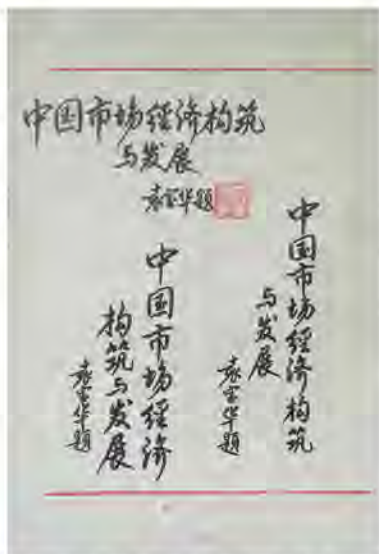 中国市场经济构筑
与发展
袁宝华题
中国市场经济构筑
与发展
袁宝华题
中国市场经济
构筑与发展
袁宝华题